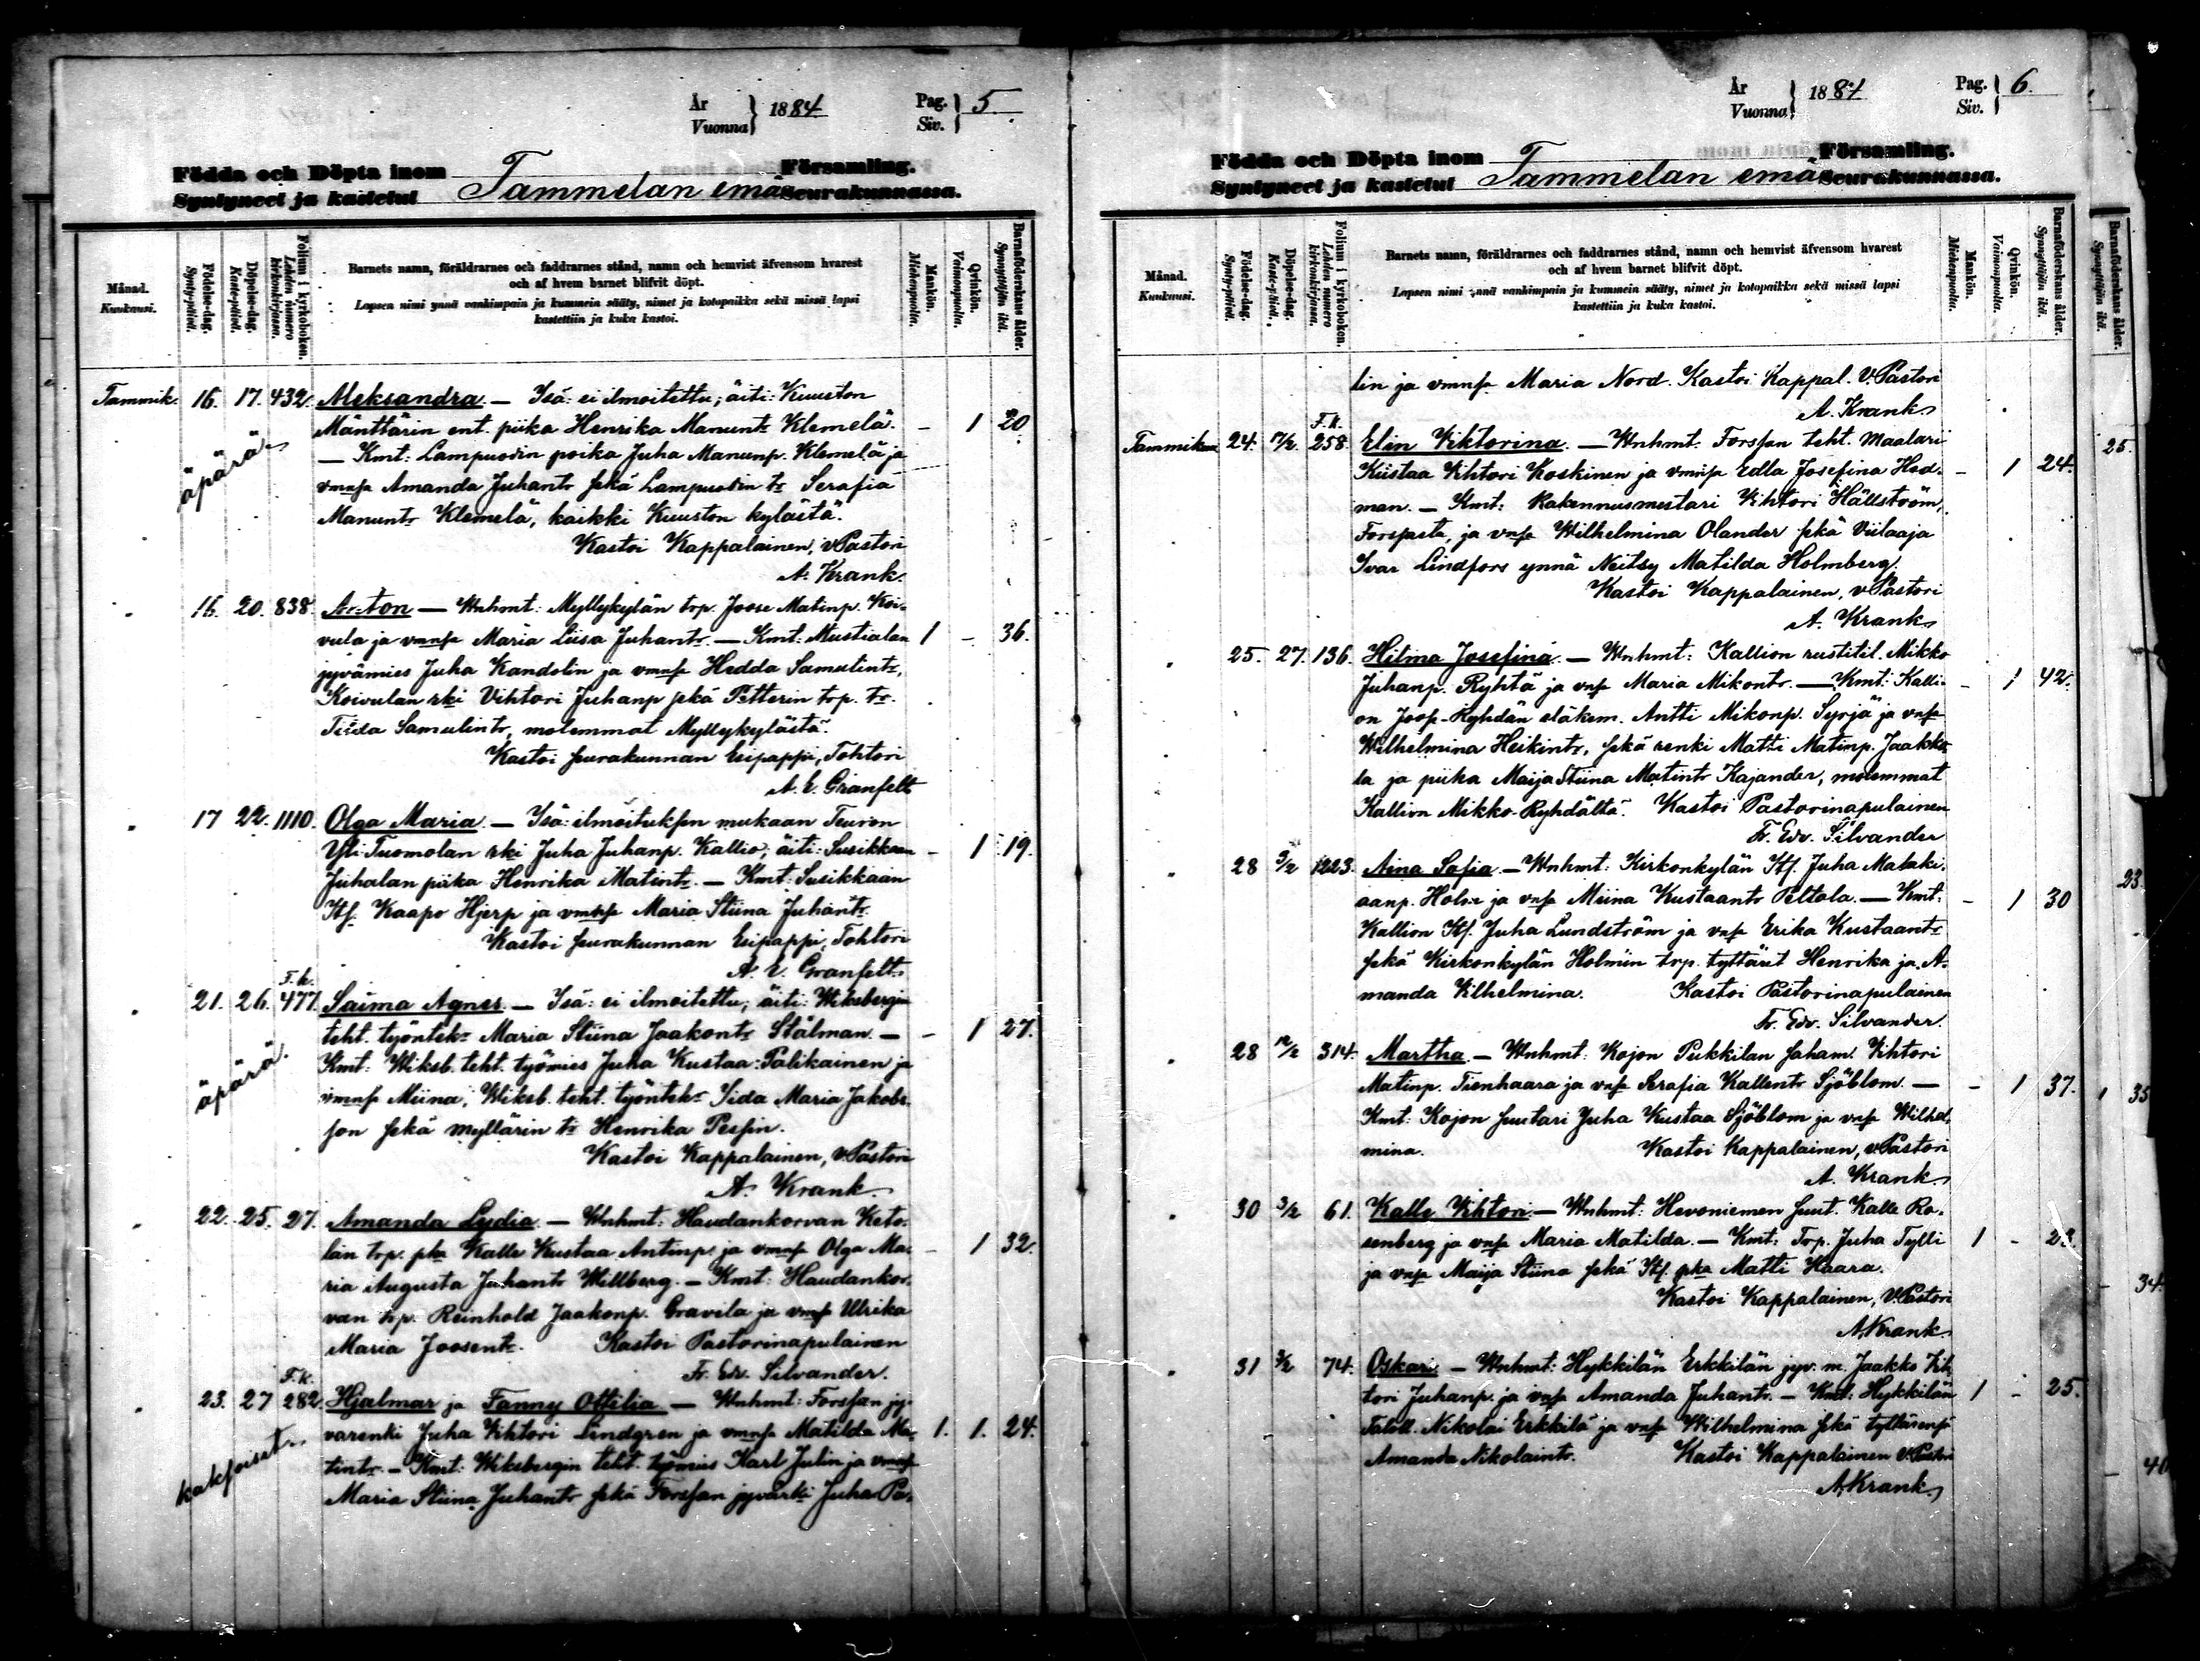 År
Vuonna
1884
Pag.
Siv.
5
Födda och Döpta inom
Syntyneet ja kastetut
Tammelan emä
Församling.
Seurakunnassa.
Månad.
Kuukausi.
Födelse-dag.
Synty-päivä.
Döpelse-dag.
Kaste-päivä.
Folium i kyrkoboken.
Lehden numero kirkonkirjassa.
Barnets namn, föräldrarnes och faddrarnes stånd, namn och hemvist äfvensom hvarest
och af hvem barnet blifvit döpt.
Lapsen nimi ynnä vanhimpain ja kummein sääty, nimet ja kotopaikka sekä missä lapsi
kastettiin ja kuka kastoi.
Mankön.
Miehenpuolta.
Qvinkön.
Vaimonpuolta.
Barnaföderskans ålder.
Synnyttäjän ikä.
Tammik. 16. 17. 432. Aleksandra — Isä: ei ilmoitettu; äiti: Kuuston
Mänttärin ent. piika Henrika Manunt. Klemelä. - 1 20
äpärä
— Kmt: Lampuodin poika Juha Manunp. Klemelä ja
vmnsa Amanda Juhantr sekä Lampuodin tr Serafia
Manuntr Klemelä, kaikki Kuuston kylästä.
Kastoi Kappalainen, v.Pastori
A. Krank.
16. 20. 838. Anton — Wnhmt: Myllykylän trp. Joose Matinp. Koi-
vula ja vmnsa Maria Liisa Juhantr. — Kmt: Mustialan 1 - 36.
jyvämies Juha Kandolin ja vmnsa Hedda Samulintr,
Koivulan rki Vihtori Juhanp sekä Petterin trp. tr.
Tiida Samulintr, molemmat Myllykylästä.
Kastoi seurakunnan Esipappi, Tohtori
A. E. Granfelt
17 22. 1110. Olga Maria. — Isä: ilmoituksen mukaan Teuron
Yli-Tuomolan rki Juha Juhanp. Kallio; äiti: Susikkaan - 1 19.
Juhalan piika Henrika Matintr. — Kmt: Susikkaan
Itf. Kaapo Hjerp ja vmnsa Maria Stiina Juhantr.
Kastoi seurakunnan Esipappi, Tohtori
A. E. Granfelt
F.k.
21. 26. 477. Saima Agnes. — Isä: ei ilmoitettu; äiti: Wiksbergin
teht. työntek: Maria Stiina Jaakontr Stålman. — - 1 27.
äpärä.
Kmt: Wiksb. teht. työmies Juha Kustaa Palikainen ja
vmnsa Miina, Wiksb. teht. työntek: Iida Maria Jakobs-
son sekä myllärin tr Henrika Pessin.
Kastoi Kappalainen, v.Pastori
A. Krank.
22. 25. 27. Amanda Lydia. — Wnhmt: Haudankorvan Keto-
län trp. pka Kalle Kustaa Antinp. ja vmnsa Olga Ma- - 1 32.
ria Augusta Juhantr Willberg. — Kmt: Haudankor-
van trp. Reinhold Jaakonp. Gravila ja vmsa Ulrika
Maria Joosentr. Kastoi Pastorinapulainen
Fr. Edv. Silvander.
F.k.
23. 27 282 Hjalmar ja Fanny Ottilia — Wnhmt: Forssan jy-
värenki Juha Vihtori Lindgren ja vmnsa Matilda Ma- 1. 1. 24.
kaksoiset
tintr. — Kmt: Wiksbergin teht. työmies Karl Julin ja vmnsa
Maria Stiina Juhantr sekä Forssan jyvärki Juha Pa-
År
Vuonna
1884
Pag.
Siv.
6.
Födda och Döpta inom
Syntyneet ja kastetut
Tammelan emä
Församling.
Seurakunnassa.
Månad.
Kuukausi.
Födelse-dag.
Synty-päivä.
Döpelse-dag.
Kaste-päivä.
Folium i kyrkoboken.
Lehden numero kirkonkirjassa.
Barnets namn, föräldrarnes och faddrarnes stånd, namn och hemvist äfvensom hvarest
och af hvem barnet blifvit döpt.
Lapsen nimi ynnä vanhimpain ja kummein sääty, nimet ja kotopaikka sekä missä lapsi
kastettiin ja kuka kastoi.
Mankön.
Miehenpuolta.
Qvinkön.
Vaimonpuolta.
Barnaföderskans ålder.
Synnyttäjän ikä.
lin ja vmnsa Maria Nord. Kastoi Kappal. V.Pastori
A. Krank
F.k.
24. 17/2. 258. Elin Viktorina. — Wnhmt. Forssan teht. maalari
Kustaa Vihtori Koskinen ja vmnsa Edla Josefina Hed- - 1 24.
man. — Kmt: Rakennusmestari Vihtori Hällström,
Forssasta, ja vnsa Wilhelmina Olander sekä Viilaaja
Ivar Lindfors ynnä Neitsy Matilda Holmberg.
Kastoi Kappalainen, v.Pastori
A. Krank
25. 27. 136. Hilma Josefina. — Wnhmt: Kallion rustitil. Mikko
Juhanp. Ryhtä ja vnsa Maria Mikontr. — Kmt: Kalli- - 1 42.
on Joos-Ryhdän eläkem. Antti Mikonp. Syrjä ja vnsa
Wilhelmina Heikintr, sekä renki Matti Matinp. Jaakko-
la ja piika Maija Stiina Matintr Kajander, molemmat
Kallion Mikko-Ryhdältä. Kastoi Pastorinapulainen
Fr. Edv. Silvander
28 3/2 1223. Aina Sofia. — Wnhmt: Kirkonkylän Itf. Juha Malaki-
aanp. Holm ja vnsa Miina Kustaantr Peltola. — Kmt: - 1 30
Kallion Kf. Juha Lundström ja vnsa Erika Kustaantr
sekä Kirkonkylän Holmin trp. tyttäret Henrika ja A-
manda Vilhelmina. Kastoi Pastorinapulainen
Fr. Edv. Silvander.
28 314. Martha — Wnhmt: Kojon Pukkilan saham. Vihtori
Matinp. Tienhaara ja vnsa Serafia Kallentr Sjöblom. — - 1 37.
Kmt: Kojon suutari Juha Kustaa Sjöblom ja vnsa Wilhel-
mina. Kastoi Kappalainen, v.Pastori
A. Krank
30 3/2 61. Kalle Vihtori — Wnhmt: Hevoniemen suut. Kalle Ro-
senberg ja vnsa Maria Matilda. — Kmt: Trp. Juha Tylli 1 -
ja vnsa Maija Stiina sekä Itf. pka Matti Haara.
Kastoi Kappalainen, V.Pastori
A. Krank
31 3/2 74. Oskari — Wnhmt: Hykkilän Erkkilän jyv. m. Jaakko Vih-
tori Juhanp. ja vnsa Amanda Juhantr. — Kmt: Hykkilän 1 - 25.
Taloll. Nikolai Erkkilä ja vnsa Wilhelmina sekä tyttärensä
Amanda Nikolaintr. Kastoi Kappalainen V.Pastori
A. Krank
Barnaföderskans ålder.
Synnyttäjän ikä.
25.
23.
1 35
34.